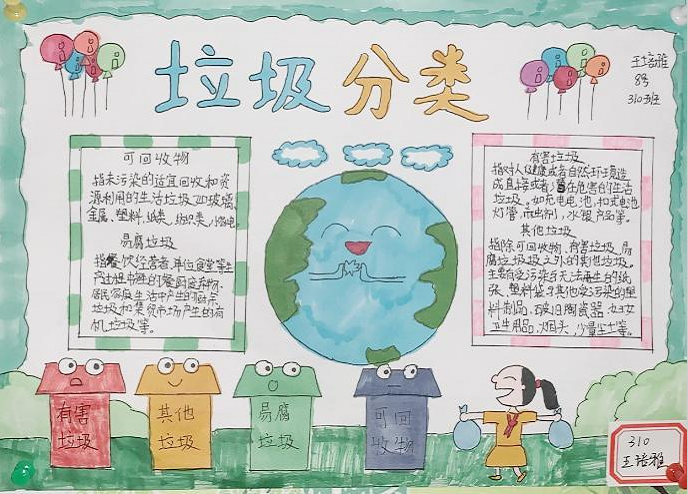 垃圾分类
王培雅
8号
310班
可回收物
指未污染的适宜回收和资
源利用的生活垃圾,如玻璃,
金属、塑料、纸类、织类、小家电
易腐垃圾
指餐饮经营者,单位食堂等生
居民家庭生活中产生的
垃圾和集贸市场产生的有
机垃圾等。
有害垃圾
指对人健康或者自然环境造
成直接或者潜在危害的生活
垃圾。如充电电池,扣式电池
灯管,而虫剂,水银产品等。
其他垃圾
指除可回收物、有害垃圾、易
腐垃圾之外的其他垃圾。
主要有受污染与无法再生的纸
张、塑料袋与其他受污染的塑
料制品、破旧陶瓷器、妇女
卫生用品、烟头、少量尘土等。
有害
垃圾
其他
垃圾
易腐
垃圾
可回
收物
310
王培雅